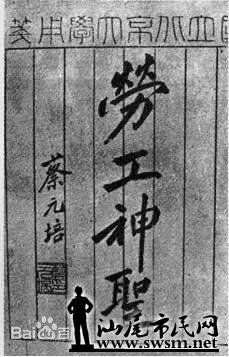 國立北京大學用箋
勞工神聖
蔡元培
Bai百
汕尾市民网
www.swsm.net